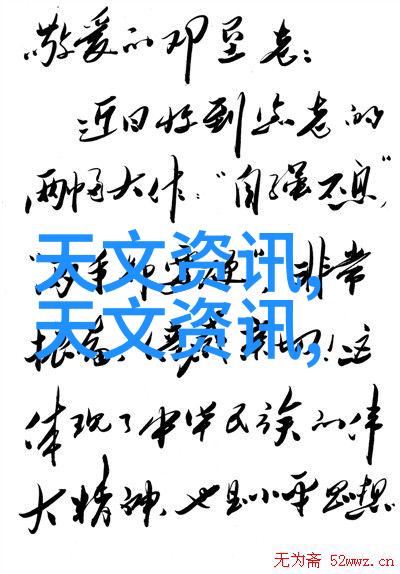 敬爱的邓垦老：
近日收到您老的
两幅大作："自强不息"
天文资讯,
非常
天文资讯,
振奋人！这
体现了中华民族的伟
大精神，也是小平思想
无为斋 52wwz.cn